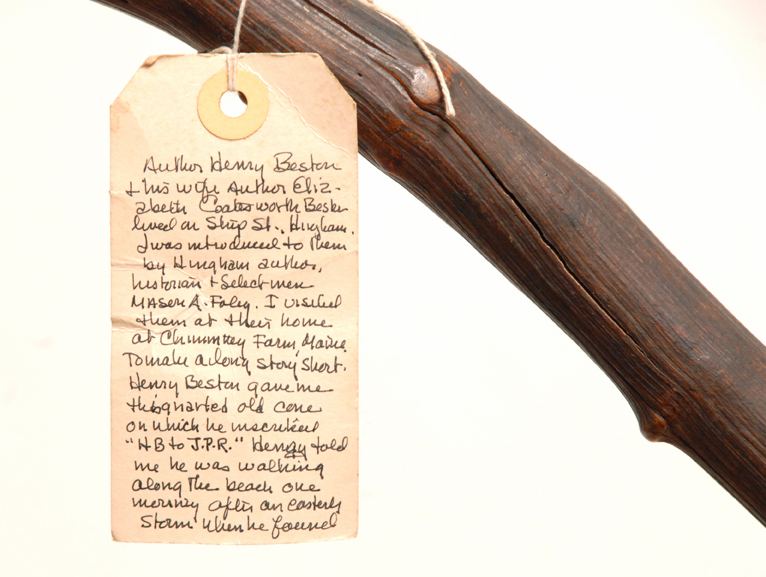 Author Henry Beston
+ his wife Author Eliz-
abeth Coatesworth Beston
lived on Ship St., Hingham.
I was introduced to them
by Hingham author,
historian + Selectmen
Mason A. Foley. I visited
them at their home
at Chimmney Farm, Maine.
To make a long story short.
Henry Beston gave me
this gnarled old cane
on which he inscribed
"HB to J.P.R." Henry told
me he was walking
along the beach one
morning after an easterly
Storm when he found